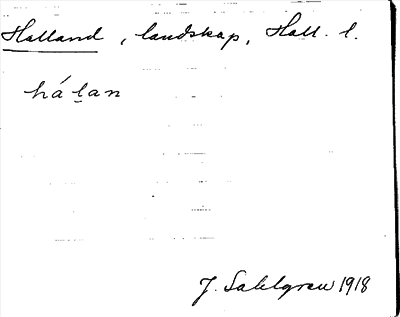 Halland, landskap, Hall. l.
háḻan
J. Sahlgren 1918